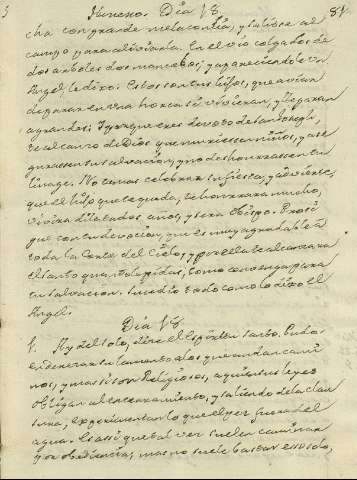 Numero. Dia 18. 84.
cha con grande melancolia, y saliose al
campo para aliviarla. En el vio colgados de
dos arboles dos mancebos; y apareciendole un
Angel le dixo. Estos son tus hijos, que avian
de parar en una horca si vivieran, y llegaran
a grandes; Y porque eres devoto de
te alcanzo de Dios que muriessen niños, y ase-
gurassen su salvacion, y no deshonrassen tu
linage. No temas celebrar su fiesta, y advierte,
que el hijo que te queda, te honrara mucho,
vivira dilatados años, y sera Obispo. Prosi-
gue con tu devocion, que es muy agradable a
toda la Corte del Cielo, y por ella te alcanzara
el Santo quanto le pidas, como convenga para
tu salvacion. Sucedio todo como lo dixo el
Angel.
Dia 18.
1. Ay del solo, dize el Espiritu Santo. Puedo
enderezar su lamento a los que andan cami-
nos, y mas si son Religiosos, a quien sus leyes
obligan al encerramiento, y saliendo de la clau-
sura, experimentan lo que el pez fuera del
agua. Es assi que tal vez suelen caminar
por obediencia, mas no suele bastar esso solo,